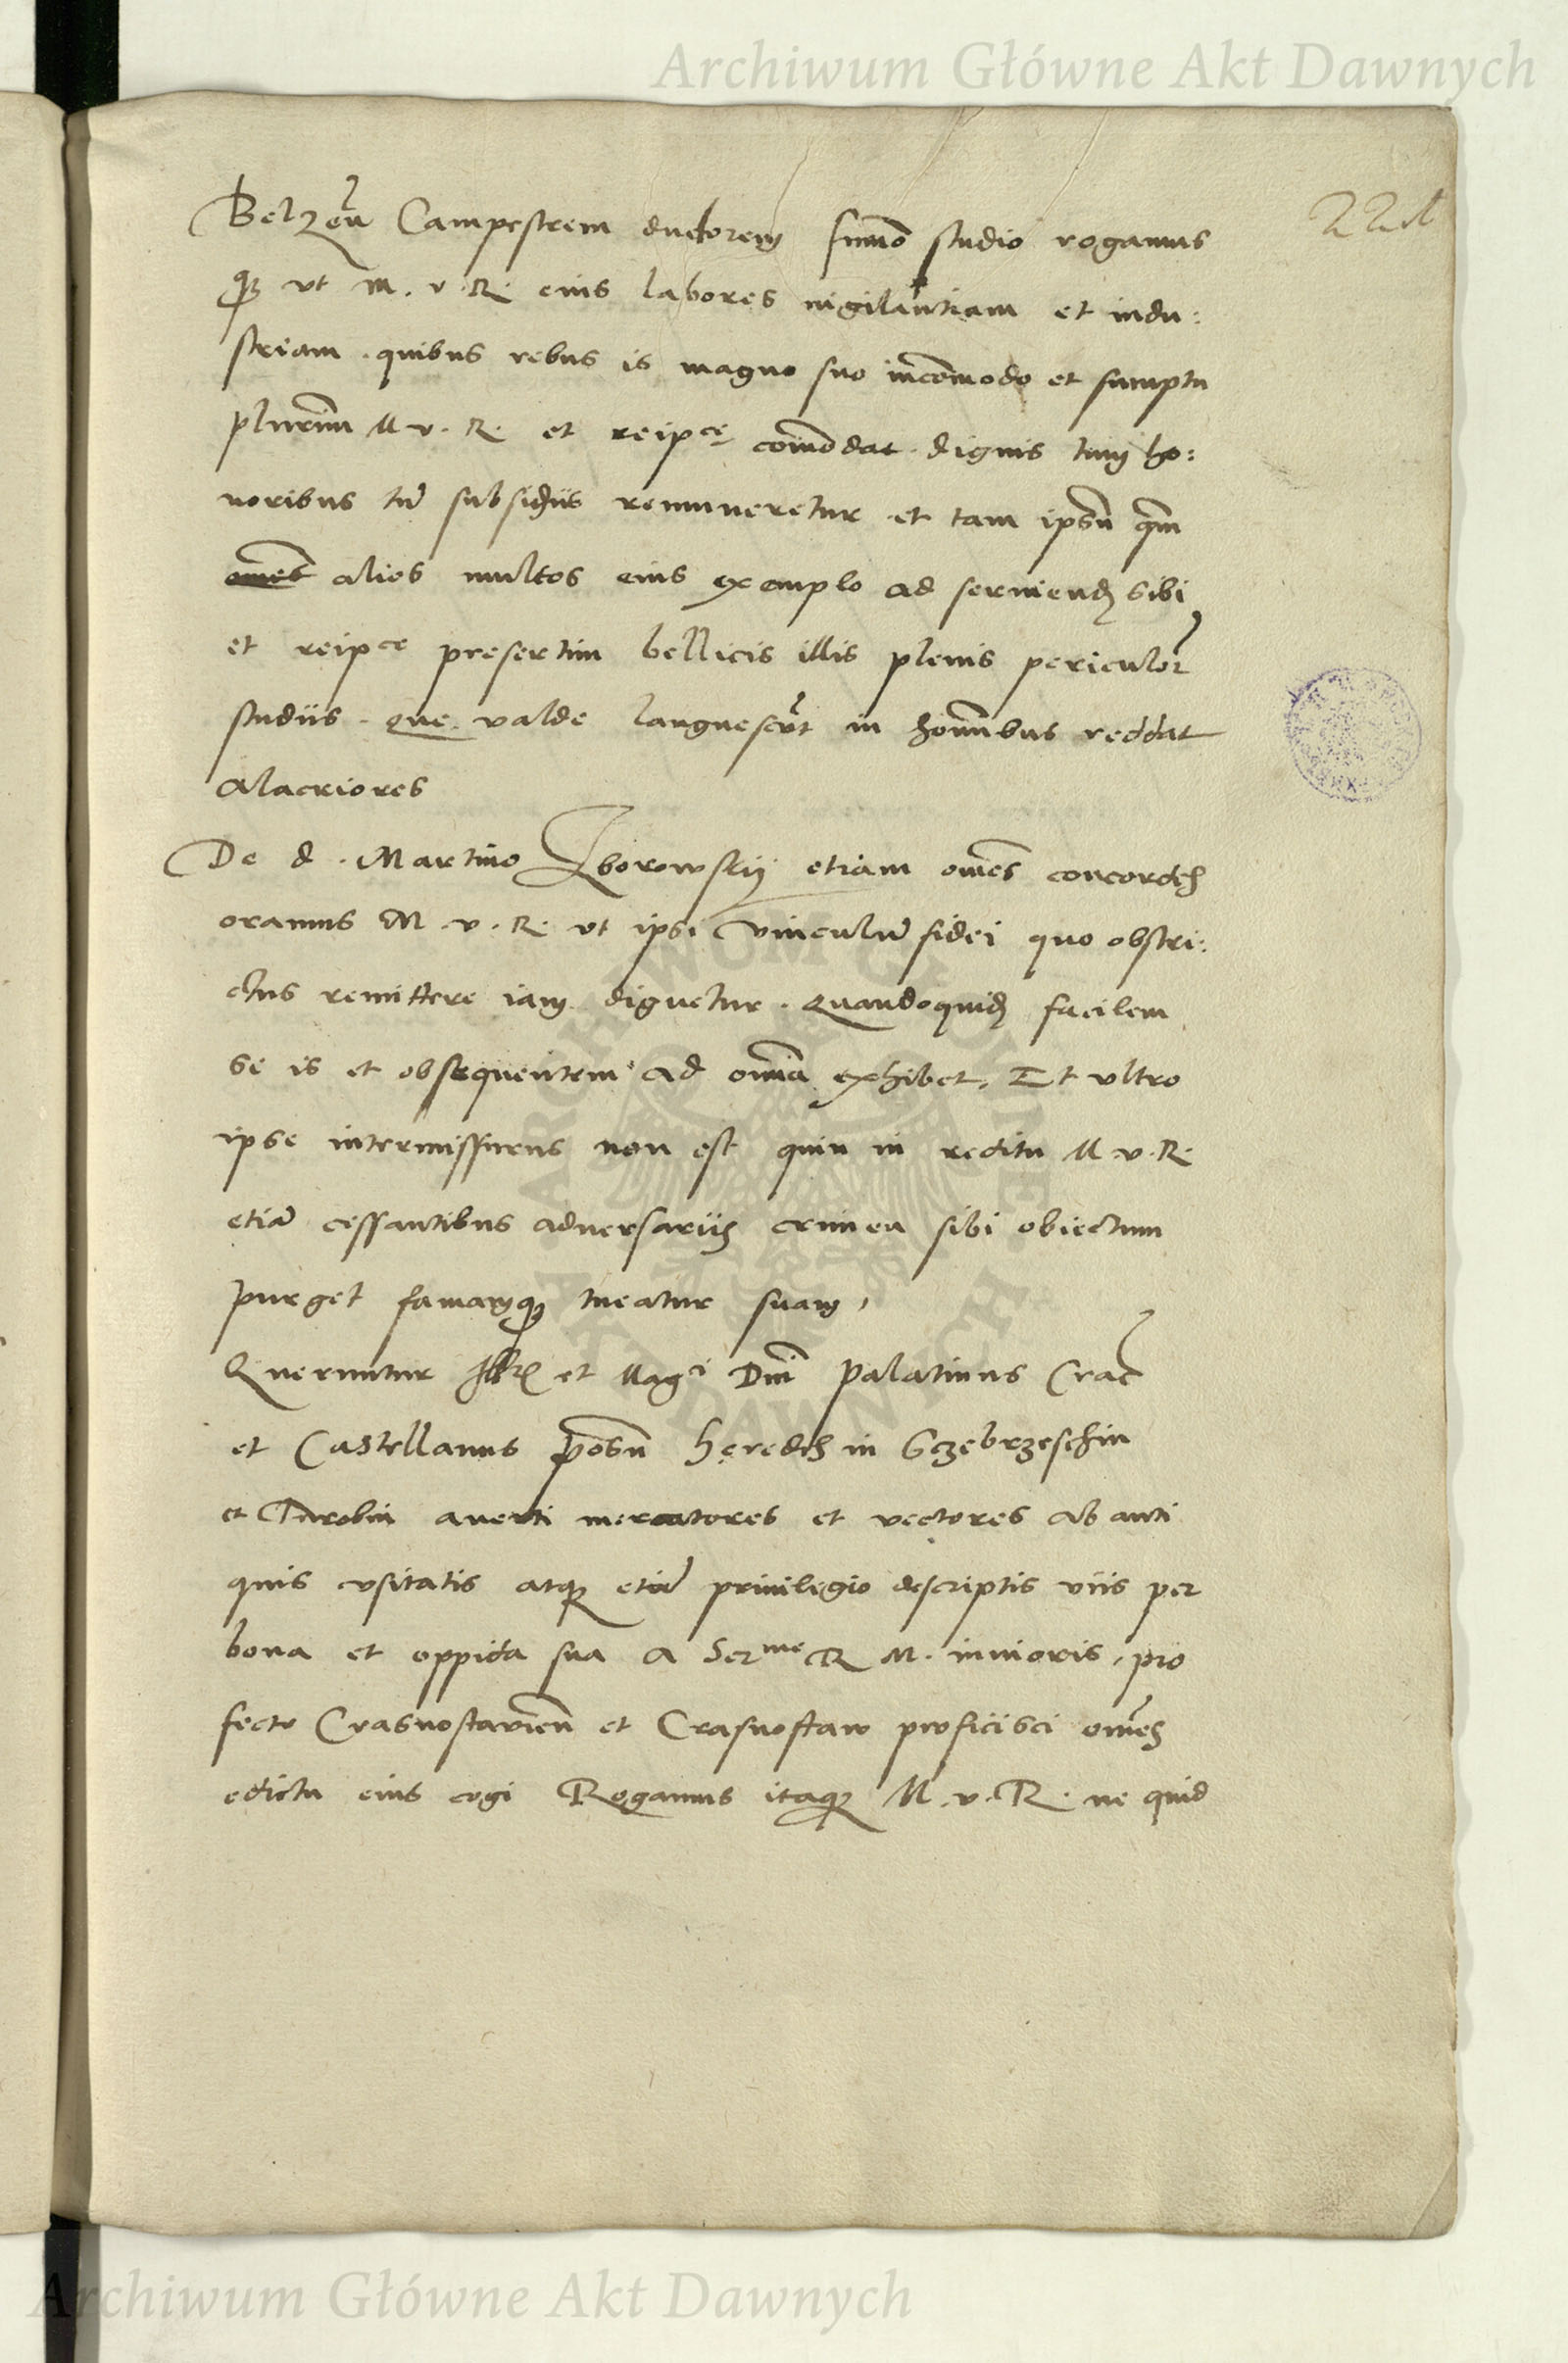 Archiwum Główne Akt Dawnych
221
Belzeñ Campestrem ductorem sum̃o studio rogamus
qȝ ut M. v. R. eius labores uigilantiam et indu:
striam . quibus rebus is magno suo incõmodo et sumptu
plurim̃ M. v. R. et reipce com̃odat . dignis tum ho:
noribus tũ subsidiis remuneretur et tam ipsũ qm̃
om̃es alios multos eius exemplo ad seruiend sibi
et reipce presertim bellicis illis plenis periculor
studiis . que valde languescũt in hom̃ibus reddat
alacriores
De d . Martino Zborowskij etiam om̃es concordes
oramus M . v . R ut ipsi vinculũ fidei quo obstri:
ctus remittere iam dignetur . Quandoquid facilem
se is et obsequentem ad om̃ia exhibet, Et ultro
ipse intermissurus non est quin in reditu M. v. R.
etiã cessantibus aduersariis crimen sibi obiectum
purget famamqȝ tueatur suam,
Queruntur et Magci Dñi Palatinus Crac̃
et Castellanus Posñ heredes in Sczebrzeschin
et Turobin auerti mercatores et vectores ab anti
quis usitatis atqȝ etiã priuilegio descriptis viis per
bona et oppida sua a Serme R M . iunioris , pre
fecto Crasnostavieñ et Crasnostaw proficisci om̃es
edictu eius cogi Rogamus itaqȝ M . v . R . ne quid
Archiwum Główne Akt Dawnych